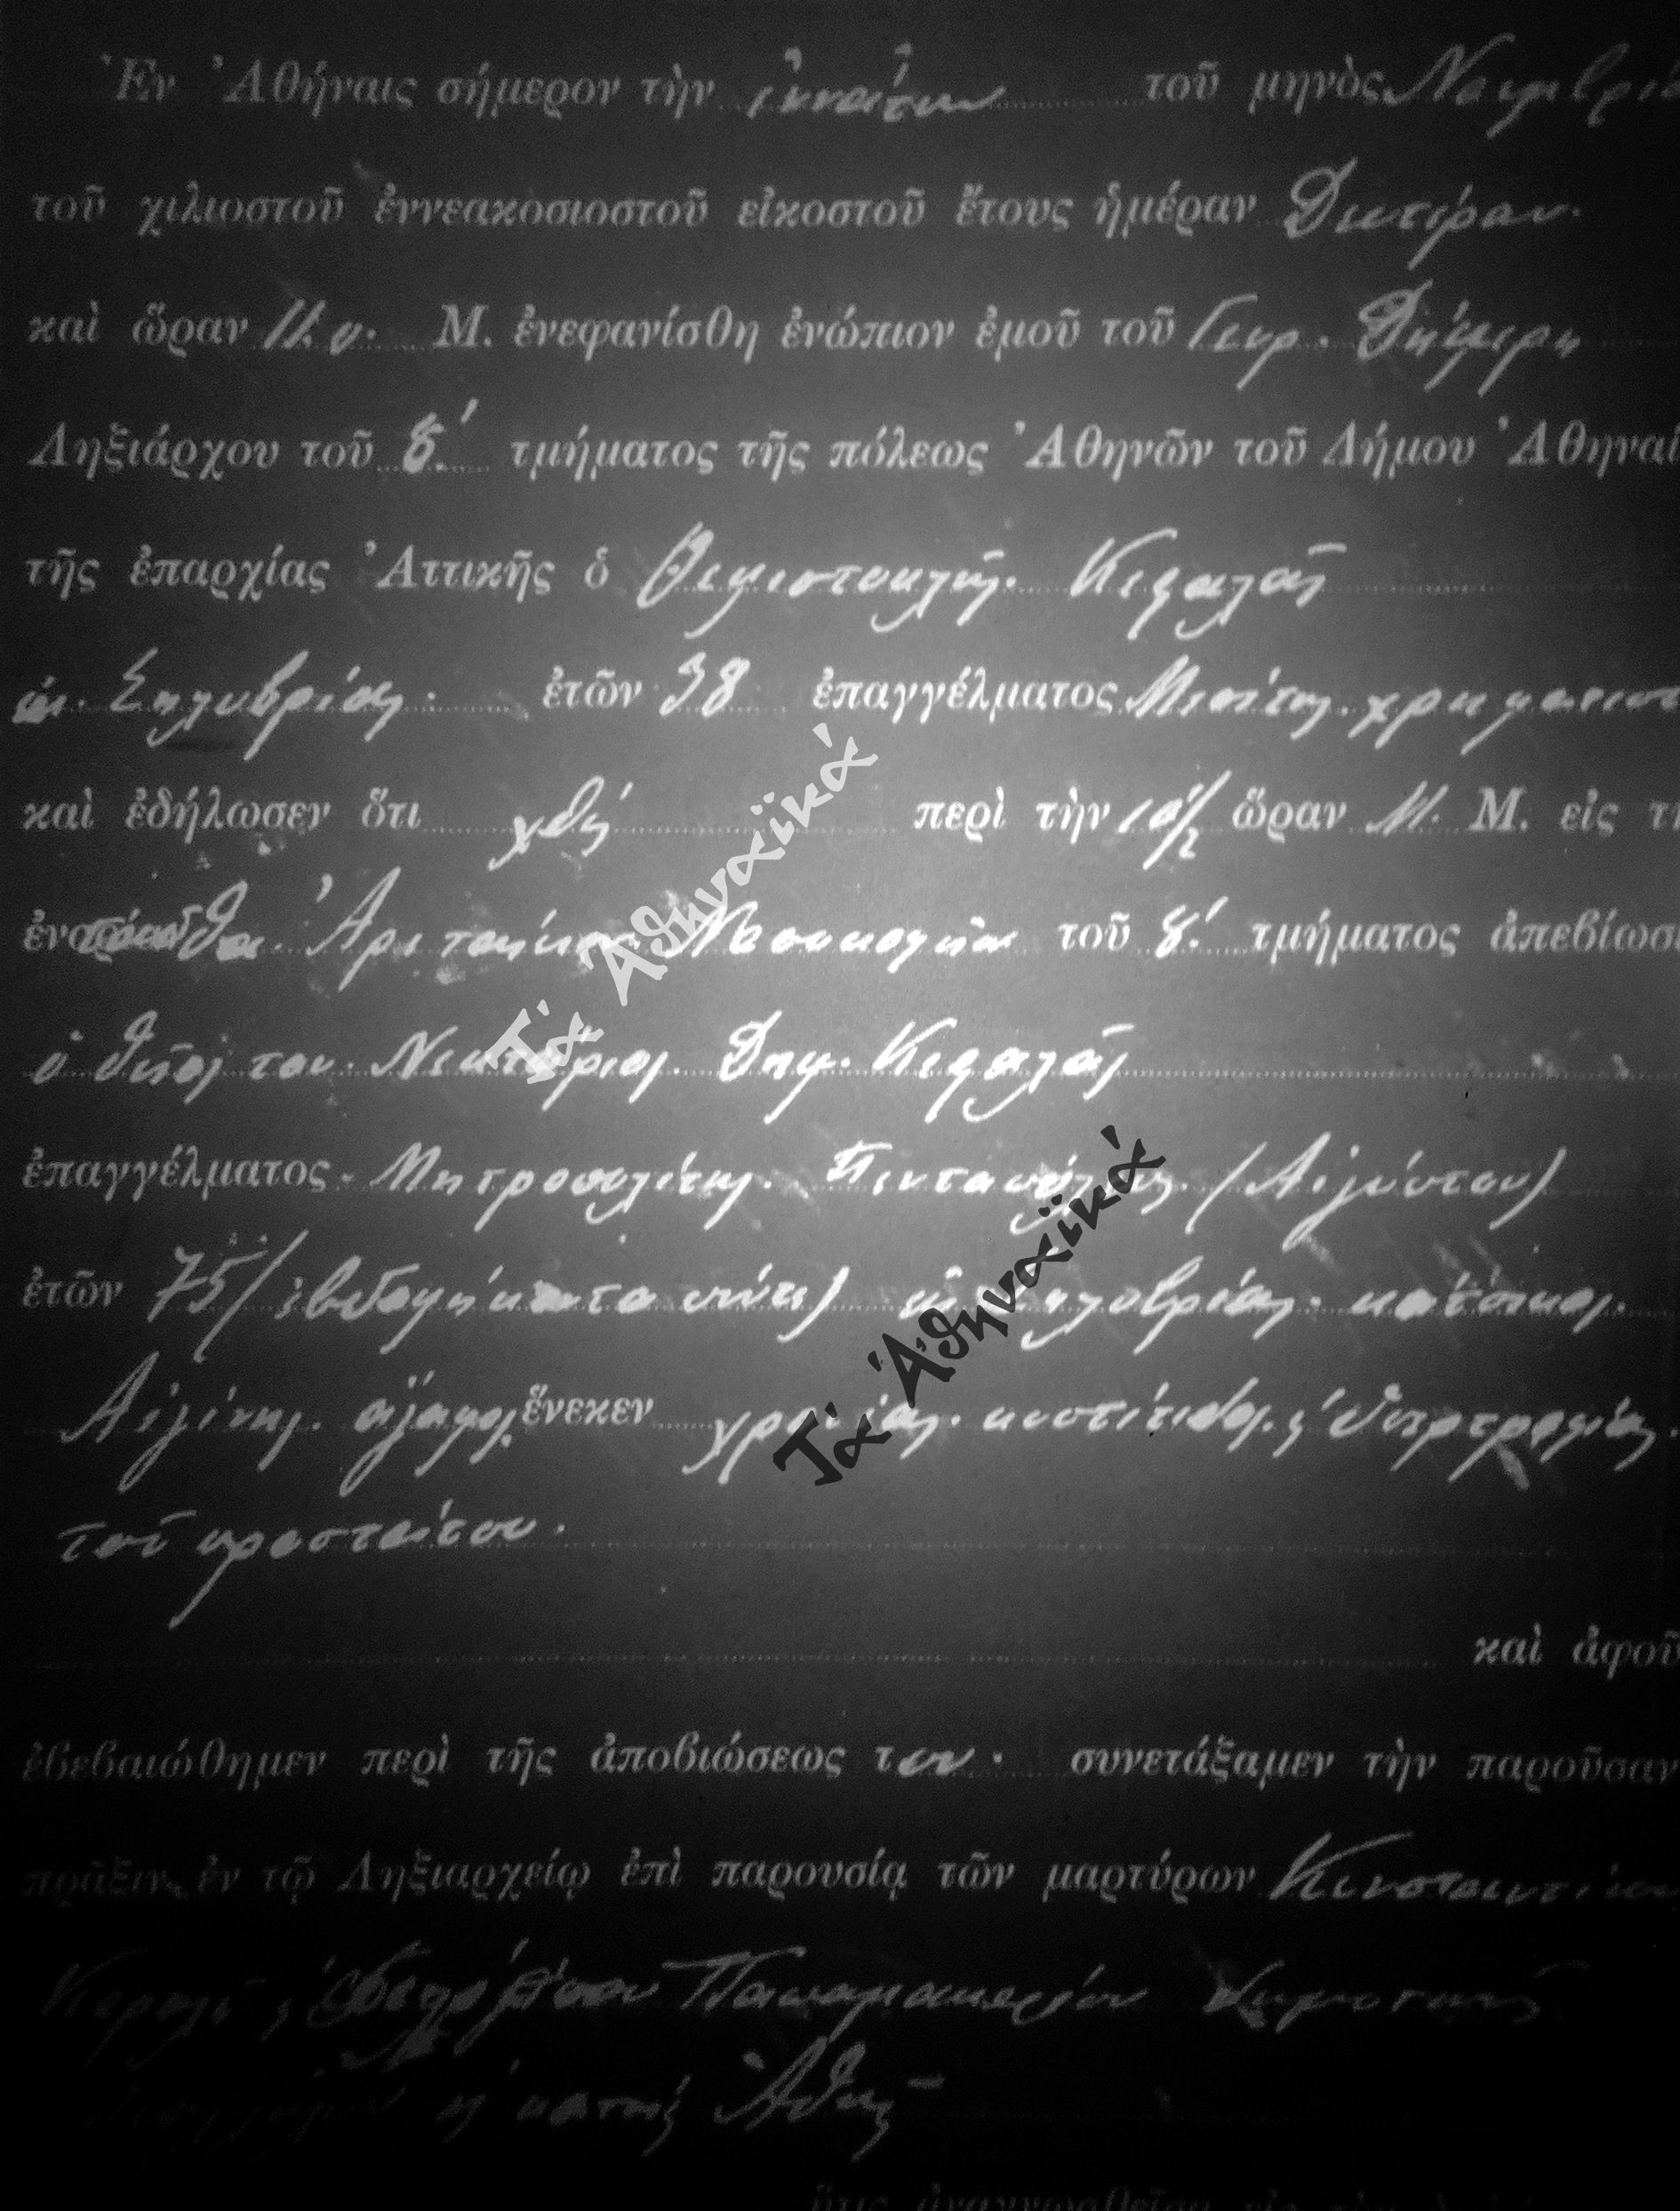 Ἐν Ἀθήναις σήμερον τὴν ἐννάτην τοῦ μηνὸς Νοεμβρίο
τοῦ χιλιοστοῦ ἐννεακοσιοστοῦ εἰκοστοῦ ἔτους ἡμέραν Δευτέραν
καὶ ὥραν Π. Μ. ἐνεφανίσθη ἐνώπιον ἐμοῦ τοῦ Γεωρ.
Ληξιάρχου τοῦ δ΄. τμήματος τῆς πόλεως Ἀθηνῶν τοῦ Δήμου Ἀθηναί
τῆς ἐπαρχίας Ἀττικῆς ὁ Θεμιστοκλῆς Κεφαλᾶς
ἐκ Σηλυβρίας ἐτῶν 38 ἐπαγγέλματος Μεσίτης χρηματιστ
καὶ ἐδήλωσεν ὅτι χθές περὶ τὴν 10 1/2 ὥραν Μ. Μ. εἰς τ
Ἀρεταίειον Νοσοκομεῖον τοῦ δ΄. τμήματος ἀπεβίωσ
ὁ θεῖος του Νεκτάριος Δημ. Κεφαλᾶς
ἐπαγγέλματος Μητροπολίτης Πενταπόλεως (Αἰγύπτου)
ἐτῶν 75 (ἑβδομήκοντα πέντε) ἐκ Σηλυβρίας κάτοικος
Αἰγίνης ἄγαμος ἕνεκεν χρονίας κυστίτιδος ὑπερτροφίας
τοῦ προστάτου.
καὶ ἀφοῦ
ἐβεβαιώθημεν περὶ τῆς ἀποβιώσεως του συνετάξαμεν τὴν παροῦσαν
πρᾶξιν ἐν τῷ Ληξιαρχείῳ ἐπὶ παρουσίᾳ τῶν μαρτύρων Κωνσταντίνου
Τὰ Ἀθηναϊκά
Τὰ Ἀθηναϊκά